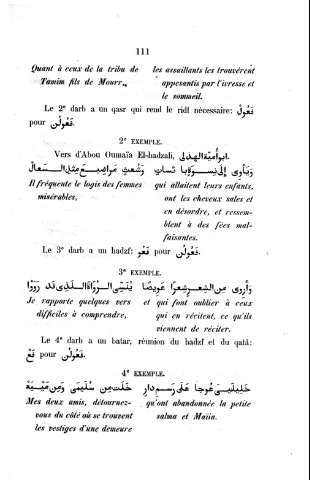 111
Quant à ceux de la tribu de les assaillants les trouvèrent
Tamîm fils de Mourr, appesantis par l'ivresse et
le sommeil.
Le 2e darb a un qasr qui rend le ridf nécessaire: فَعُولْ
pour فَعُولُنْ.
2e EXEMPLE.
Vers d'Abou Oumaïa El-hadzali, ابو أميّة الهذلي.
وَيَأْوِي إِلَى نِسْوَةٍ بَائِسَاتٍ وَشُعْثٍ مَرَاضِيعَ مِثْلِ السَّعَالْ
Il fréquente le logis des femmes qui allaitent leurs enfants,
misérables, ont les cheveux sales et
en désordre, et ressem-
blent à des fées mal-
faisantes.
Le 3e darb a un hadzf: فَعُو pour فَعُولُنْ.
3e EXEMPLE.
وَأَرْوِي مِنَ الشِّعْرِ شِعْرًا عَوِيصًا يُنَسِّي الرُّوَاةَ الَّذِي قَدْ رَوَوْا
Je rapporte quelques vers et qui font oublier à ceux
difficiles à comprendre, qui en récitent, ce qu'ils
viennent de réciter.
Le 4e darb a un batar, réunion du hadzf et du qatâ:
فَعْ pour فَعُولُنْ.
4e EXEMPLE.
خَلِيلَيَّ عُوجَا عَلَى رَسْمِ دَارٍ خَلَتْ مِنْ سُلَيْمَى وَمِنْ مَيَّهْ
Mes deux amis, détournez- qu'ont abandonnée la petite
vous du côté où se trouvent salma et Maïia.
les vestiges d'une demeure